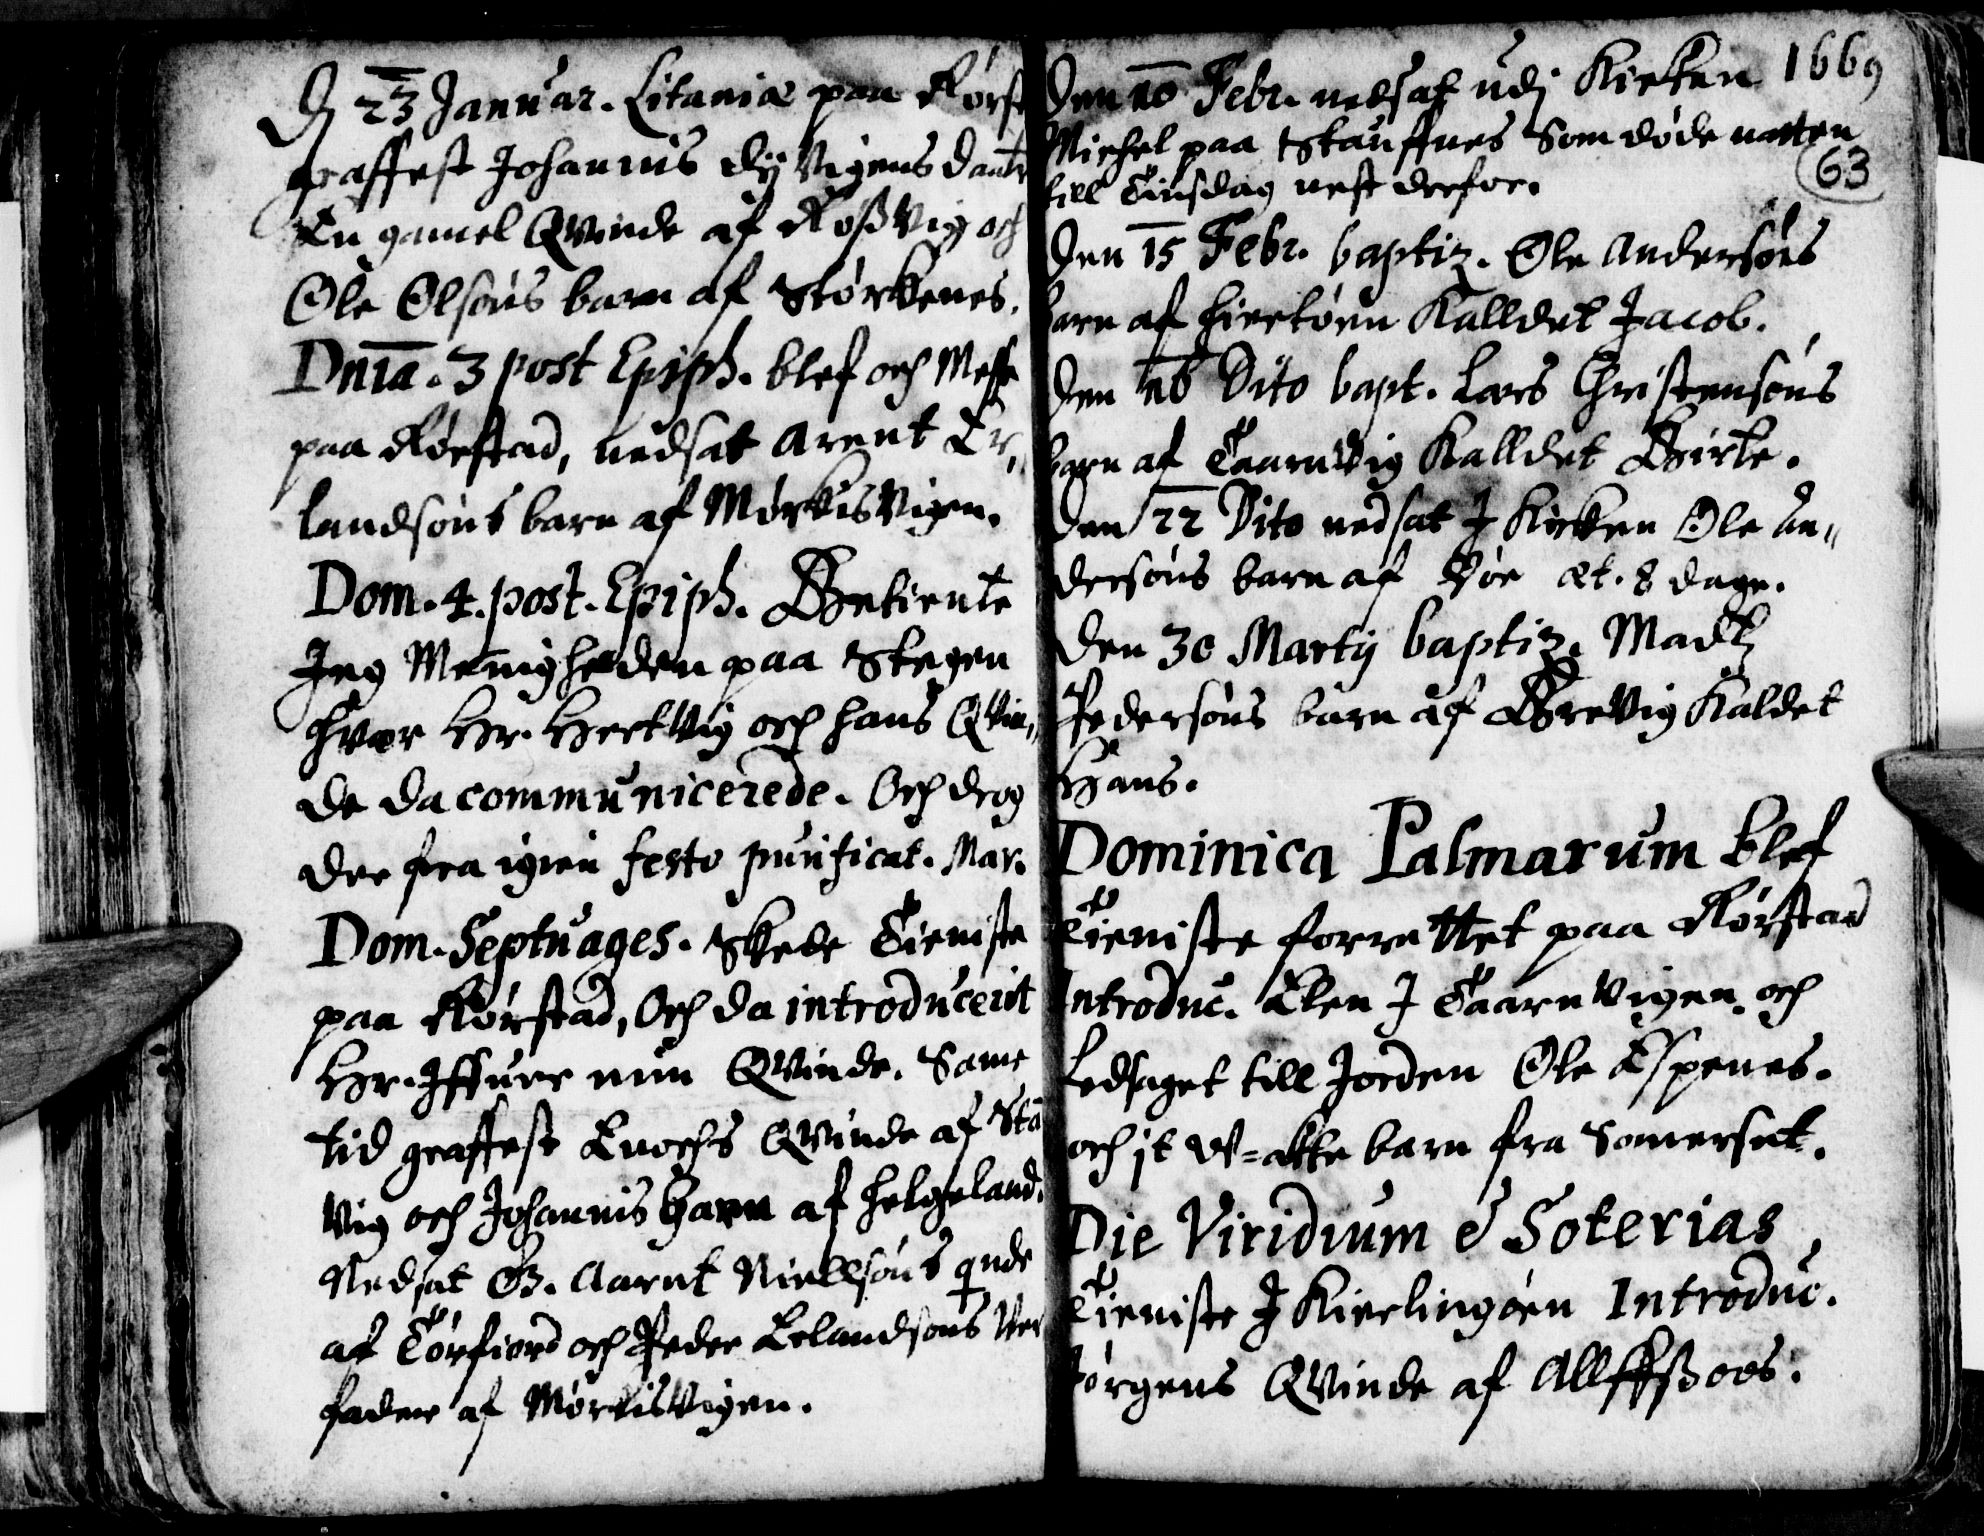 D. 23 Januar. Litaniæ paa Rørst
graffest Johannis Dÿ Vigens daatr
En gamel Qvinde af Røsvig och
Ole Olsøns barn af Størkenes.
Dnīca. 3 post Epiph. blef och Messe
paa Rørstad, nedsat Arent Er„
landsøns barn af Mørkis Vigen.
Dom. 4. post. Epiph. Betiente
Jeg Menigheden paa Stegen
hvor Hr. Hertvig och hans Qvin„
de da communicerede. Och drog
der fra igien festo purificat. Mar.
Dom. Septuages. Skede Tieniste
paa Rørstad, Och da introducerit
Hr. Iffuer min Qvinde. Same
tid graffest Enochs Qvinde af Sta
vig och Johannis Barn af Helgeland.
Nedsat B. Aarnt Niellsøns qnde
af Tørfiord och Peder Erlandsøns Ver
fader af Mørkisvigen.
Den 10 Febr. nedsat udj Kirken 1669
Michel paa Stauffnes Som døde natten
till Tinsdag nest derfor. 63
Den 15 Febr. baptiz. Ole Andersøns
barn af Hiertøen Kalldet Jacob.
Den 16 Dito bapt. Lars Christensøns
barn af Taarnvig Kalldet Birte.
Den 22 Dito nedsat J Kirken Ole An„
dersøns barn af Røe æt. 8 dage.
Den 30 Martij baptiz. Madtz
Pedersøns barn af Brevig Kaldet
Hans.
Dominica Palmarum blef
Tieniste forrettet paa Rørstad
Introduc. Elen J Taarnvigen. och
Ledsaget till Jorden Ole Espenes.
och it W-ækte barn fra Somerset.
Die Viridium & Soterias
Tieniste J Kierlingøen Introduc.
Jørgens Qvinde af Allffsoos.